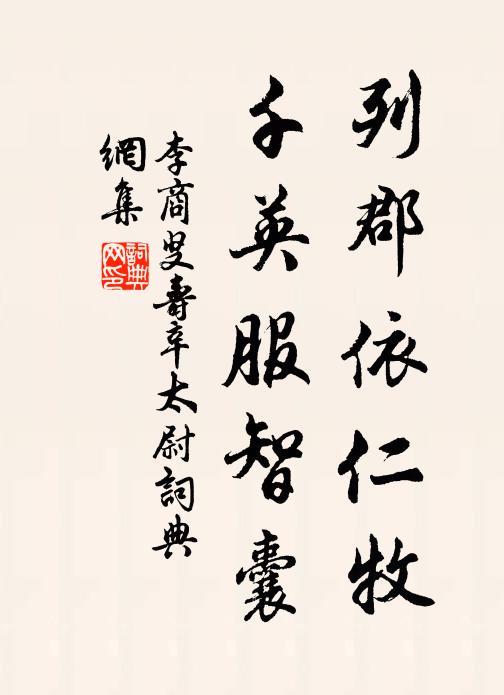 列郡依仁牧
千英服智囊
李商叟壽辛太尉詞典
網集
詞典
网印